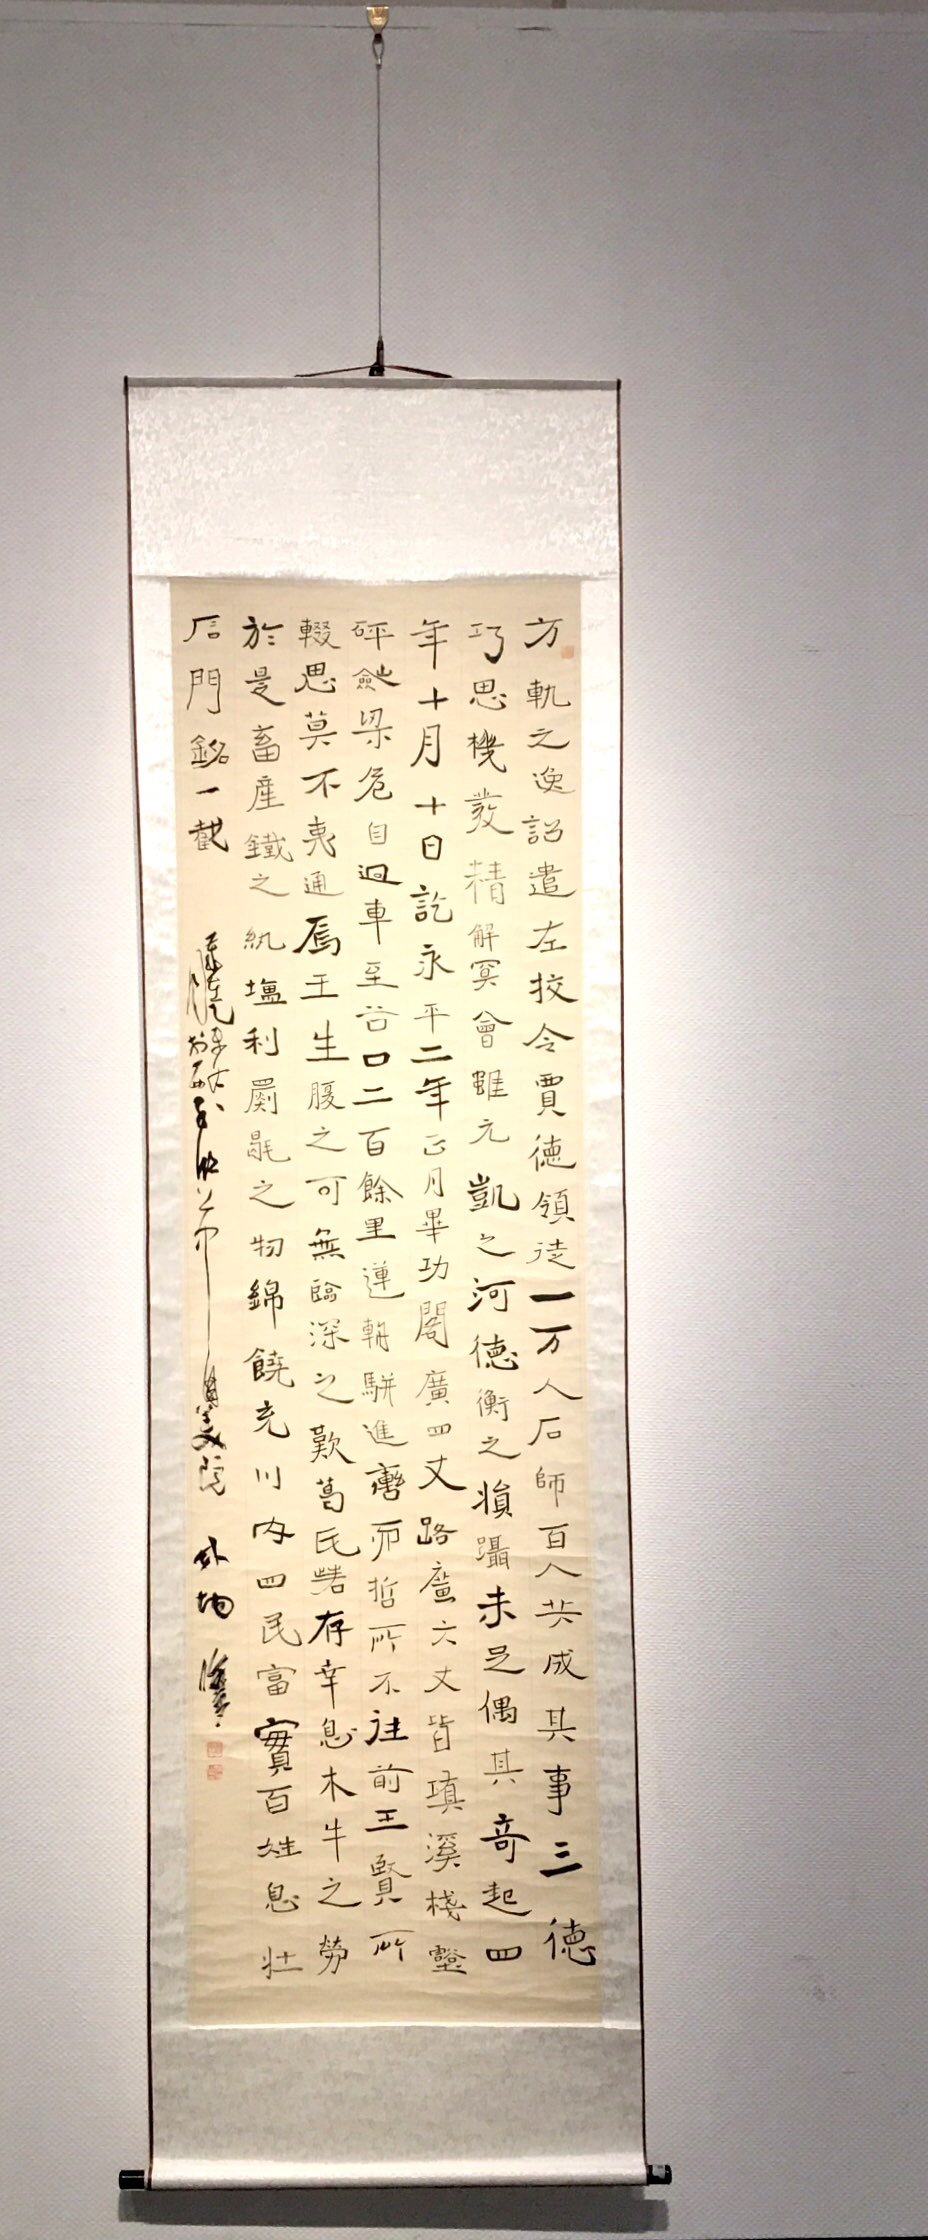 方軌之逸詔遣左挍令賈德領徒一万人石師百人共成其事三德
巧思機發精解冥會雖元凱之河德衡之損躡未足偶其奇起四
年十月十日訖永平二年正月畢功閣廣四丈路廣六丈皆填溪棧壑
砰嶮梁危自迴車至谷口二百餘里連輈騈進徃而哲所不往前王賢所
輟思莫不夷通焉王生履之可無臨深之歎葛氏若存幸息木牛之勞
於是畜產鐵之紈塩利罽毼之物錦饒充川內四民富實百姓息壯
石門銘一截